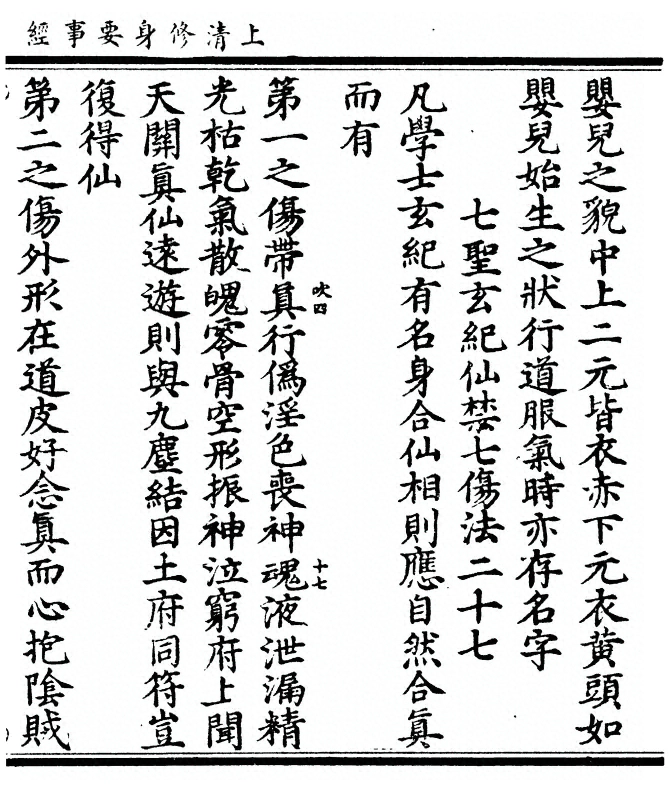 上清修身要事經
嬰兒之貌中上二元皆衣赤下元衣黄頭如
嬰兒始生之狀行道服氣時亦存名字
七聖玄紀仙禁七傷法二十七
凡學士玄紀有名身合仙相則應自然合眞
而有
吹四
十七
第一之傷帶眞行僞淫色喪神魂液泄漏精
光枯乾氣散魄零骨空形振神泣窮府上聞
天關眞仙遠遊則與九塵結因土府同符豈
復得仙
第二之傷外形在道皮好念眞而心抱陰賊